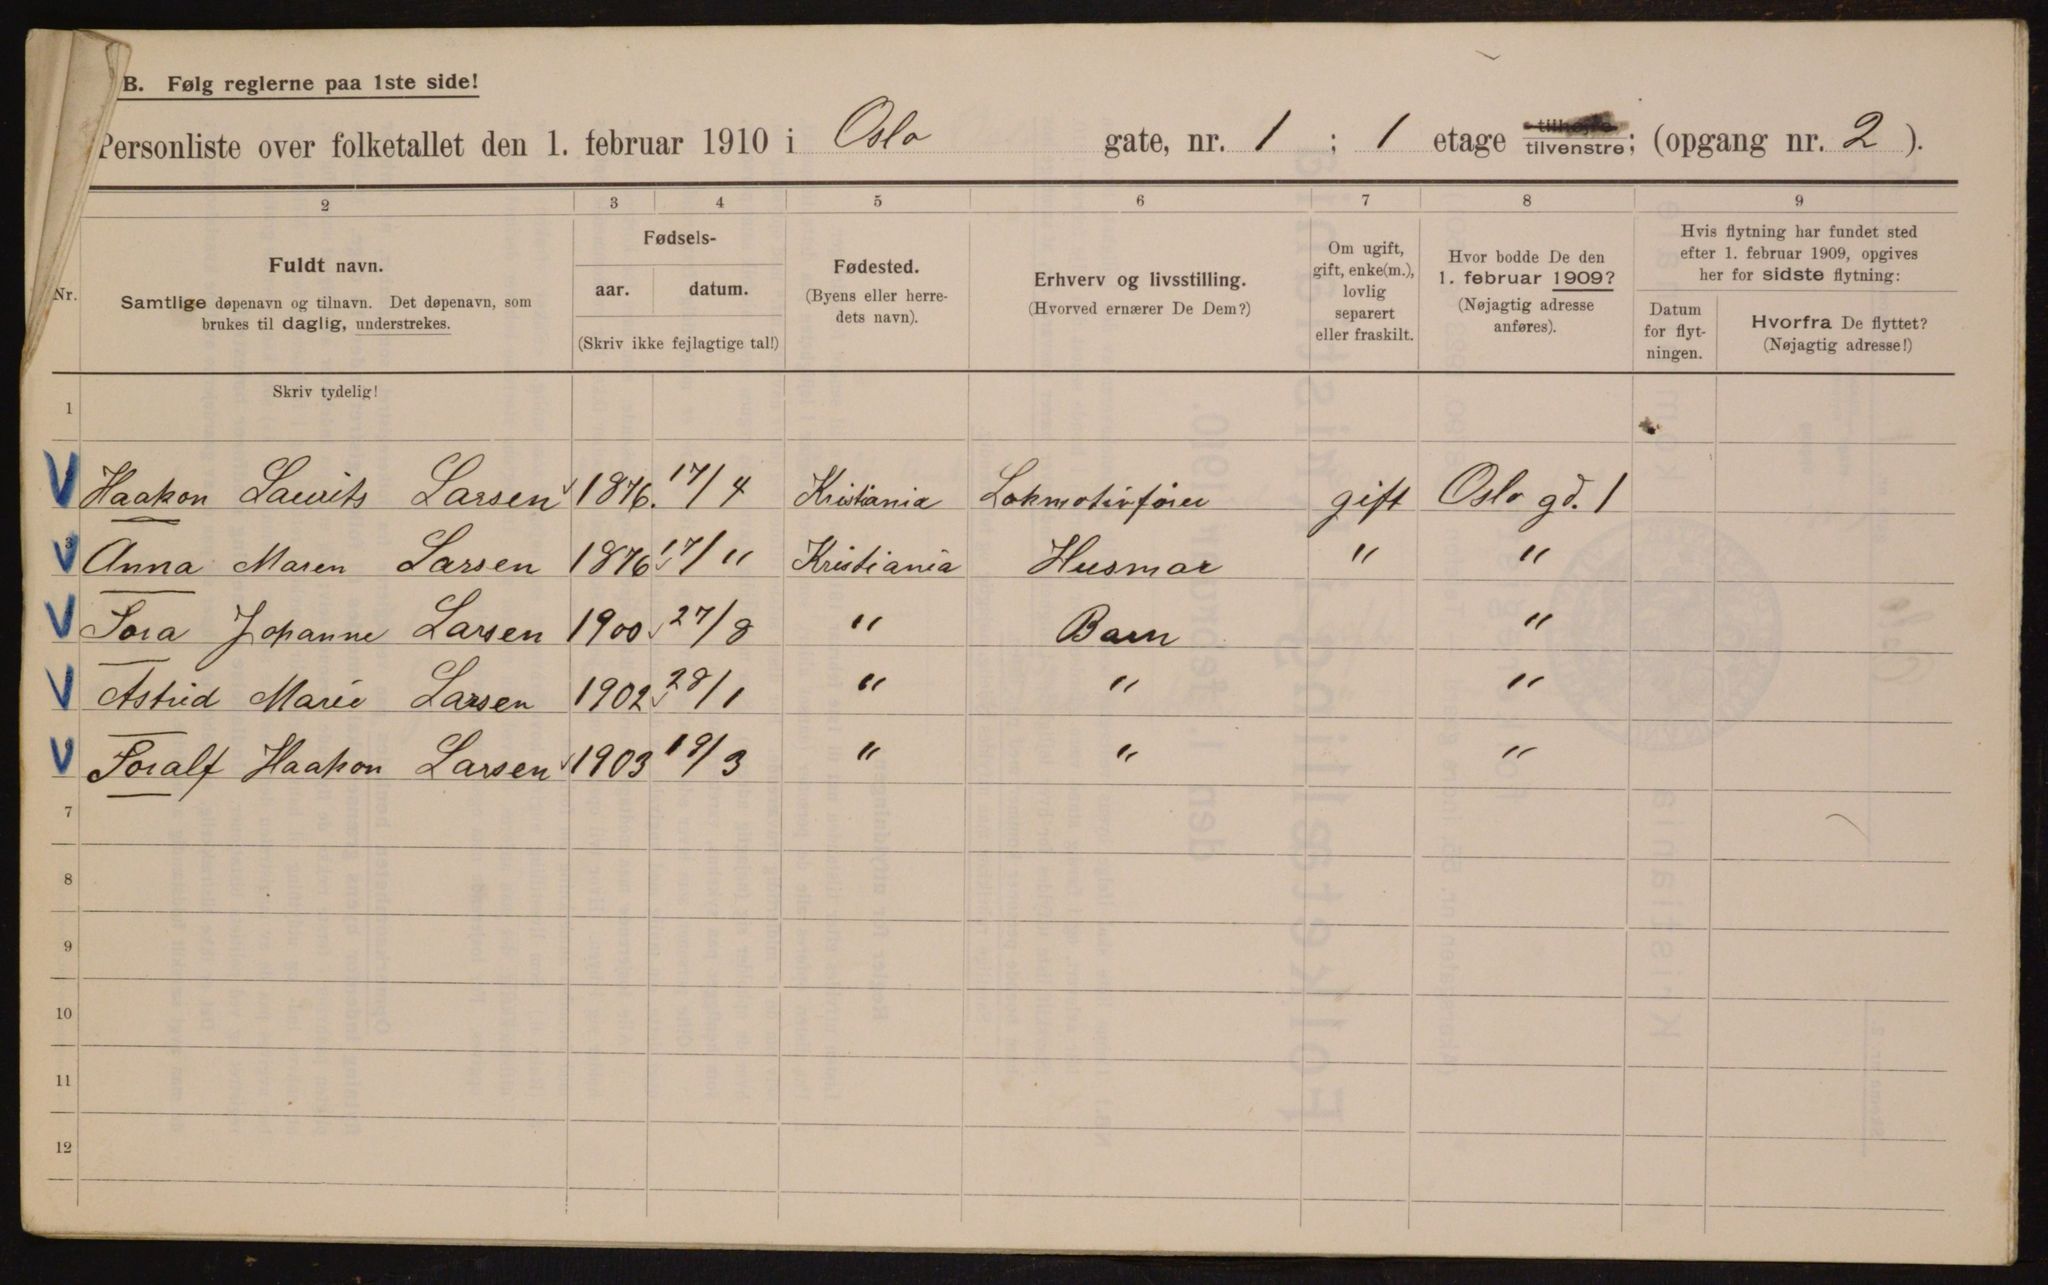 B. Følg reglerne paa 1ste side!
Personliste over folketallet den 1. februar 1910 i Oslo gate, nr. 1 ; 1 etage tilhøjre tilvenstre; (opgang nr. 2 ).
2 3 4 5 6 7 8 9
Nr.
Fuldt navn.
Samtlige døpenavn og tilnavn. Det døpenavn, som
brukes til daglig, understrekes.
Skriv tydelig!
Fødsels-
aar. datum.
(Skriv ikke fejlagtige tal!)
Fødested.
(Byens eller herre-
dets navn).
Erhverv og livsstilling.
(Hvorved ernærer De Dem?)
Om ugift,
gift, enke(m.),
lovlig
separert
eller fraskilt.
Hvor bodde De den
1. februar 1909?
(Nøjagtig adresse
anføres).
Hvis flytning har fundet sted
efter 1. februar 1909, opgives
her for sidste flytning:
Datum
for flyt-
ningen.
Hvorfra De flyttet?
(Nøjagtig adresse!)
1
Haakon Laurits Larsen 1876. 17/4 Kristiania Lokmotivfører gift Oslo gd. 1
3 Anna Maren Larsen 1876 17/" Kristiania Husmor " "
Tora Johanne Larsen 1900 27/8 " Barn "
Astrid Marie Larsen 1902 28/1 " " "
Toralf Haakon Larsen 1903 19/3 " " "
7
8
9
10
11
12